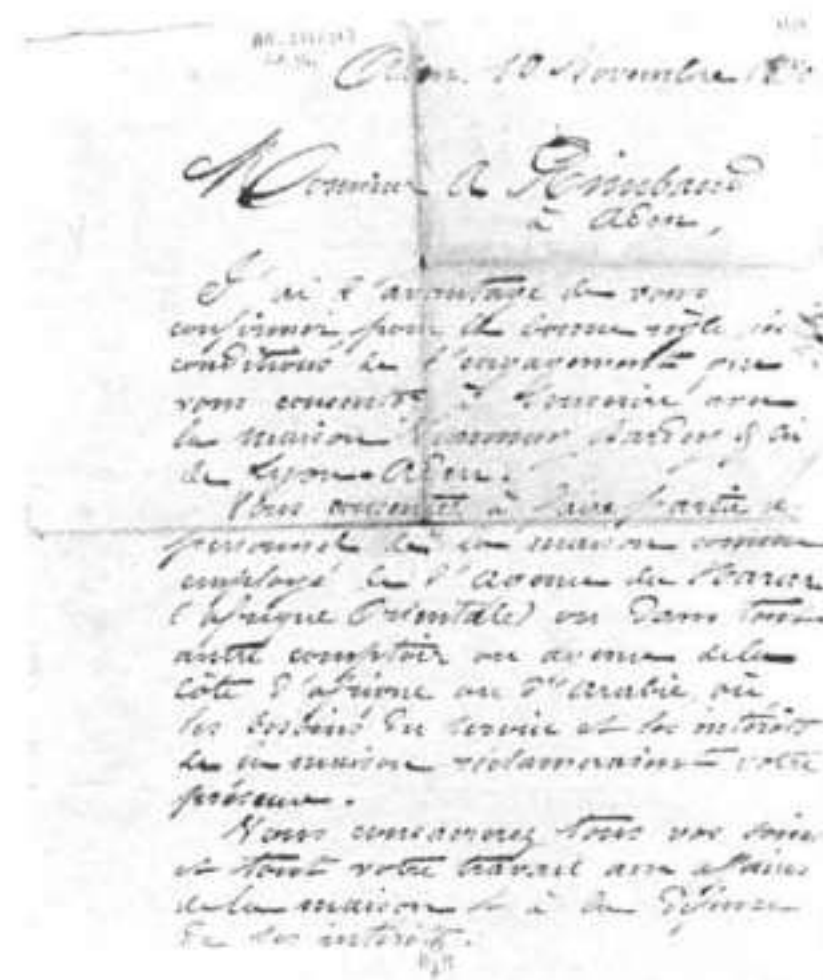 Aden, 10 Novembre 1880
Monsieur A Rimbaud
à Aden,
J'ai l'avantage de vous
confirmer pour la bonne règle les
conditions de l'engagement que
vous consentez à souscrire avec
la maison Viannay Bardey & Cie
de Lyon & Aden.
Vous consentez à faire partie du
personnel de la maison comme
employé de l'agence du Harar
(Afrique Orientale) ou dans tout
autre comptoir ou agence de la
côte d'Afrique ou d'Arabie, où
les besoins du service et les intérêts
de la maison réclameraient votre
présence.
Vous consacrerez tous vos soins
et tout votre travail aux affaires
de la maison et à la défense
de ses intérêts.